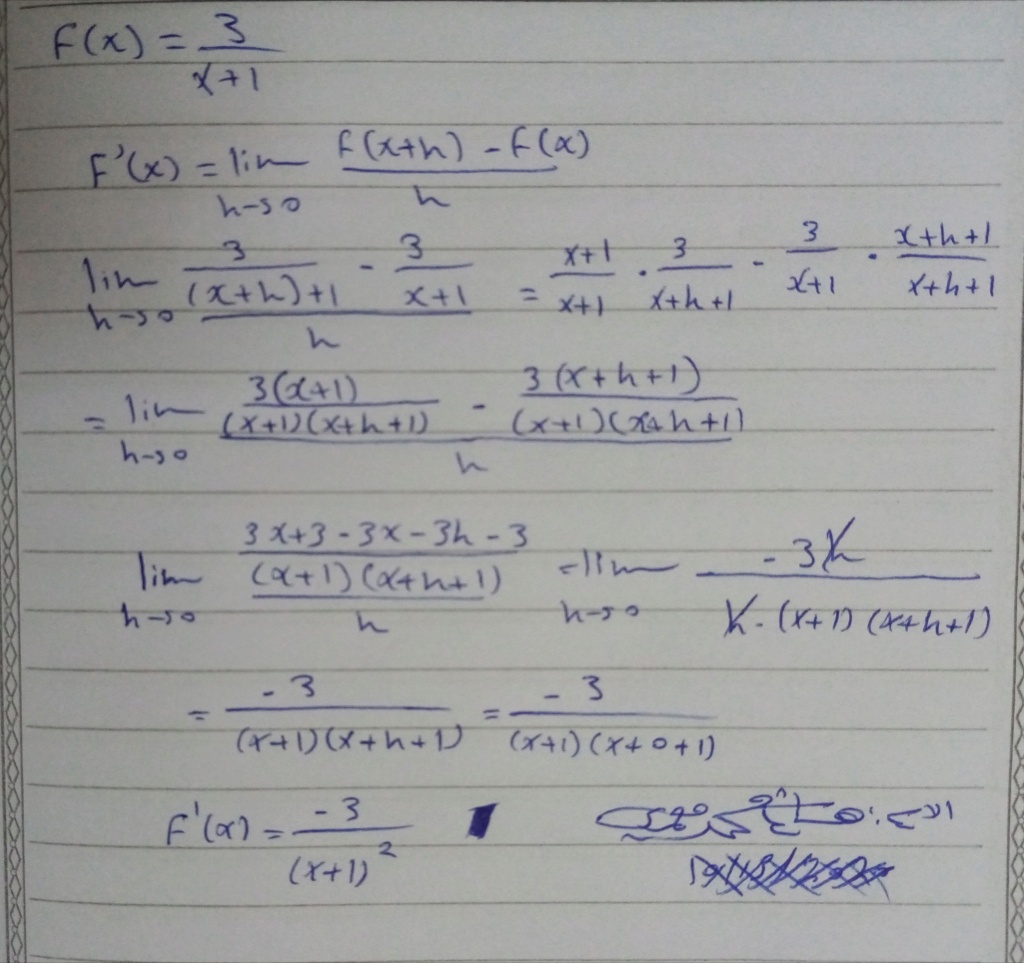 F(x) = 3/(x+1)
F'(x) = lim h->0 (f(x+h) - f(x))/h
lim h->0 (3/((x+h)+1) - 3/(x+1))/h = (x+1)/(x+1) · 3/(x+h+1) - 3/(x+1) · (x+h+1)/(x+h+1)
= lim h->0 (3(x+1)/((x+1)(x+h+1)) - 3(x+h+1)/((x+1)(x+h+1)))/h
lim h->0 ((3x+3-3x-3h-3)/((x+1)(x+h+1)))/h = lim h->0 -3h/(h·(x+1)(x+h+1))
= -3/((x+1)(x+h+1)) = -3/((x+1)(x+0+1))
F'(x) = -3/(x+1)²